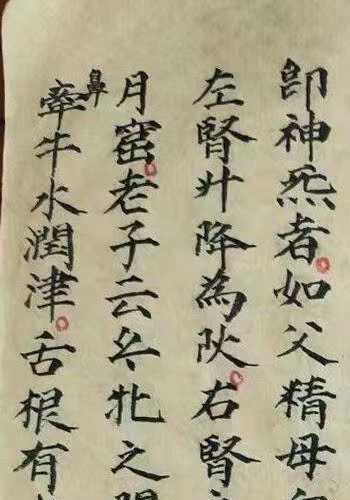 即神炁者如父精母
左腎升降為阦右腎
月窑老子云玄牝之門
鼻
牽牛水潤津舌根有